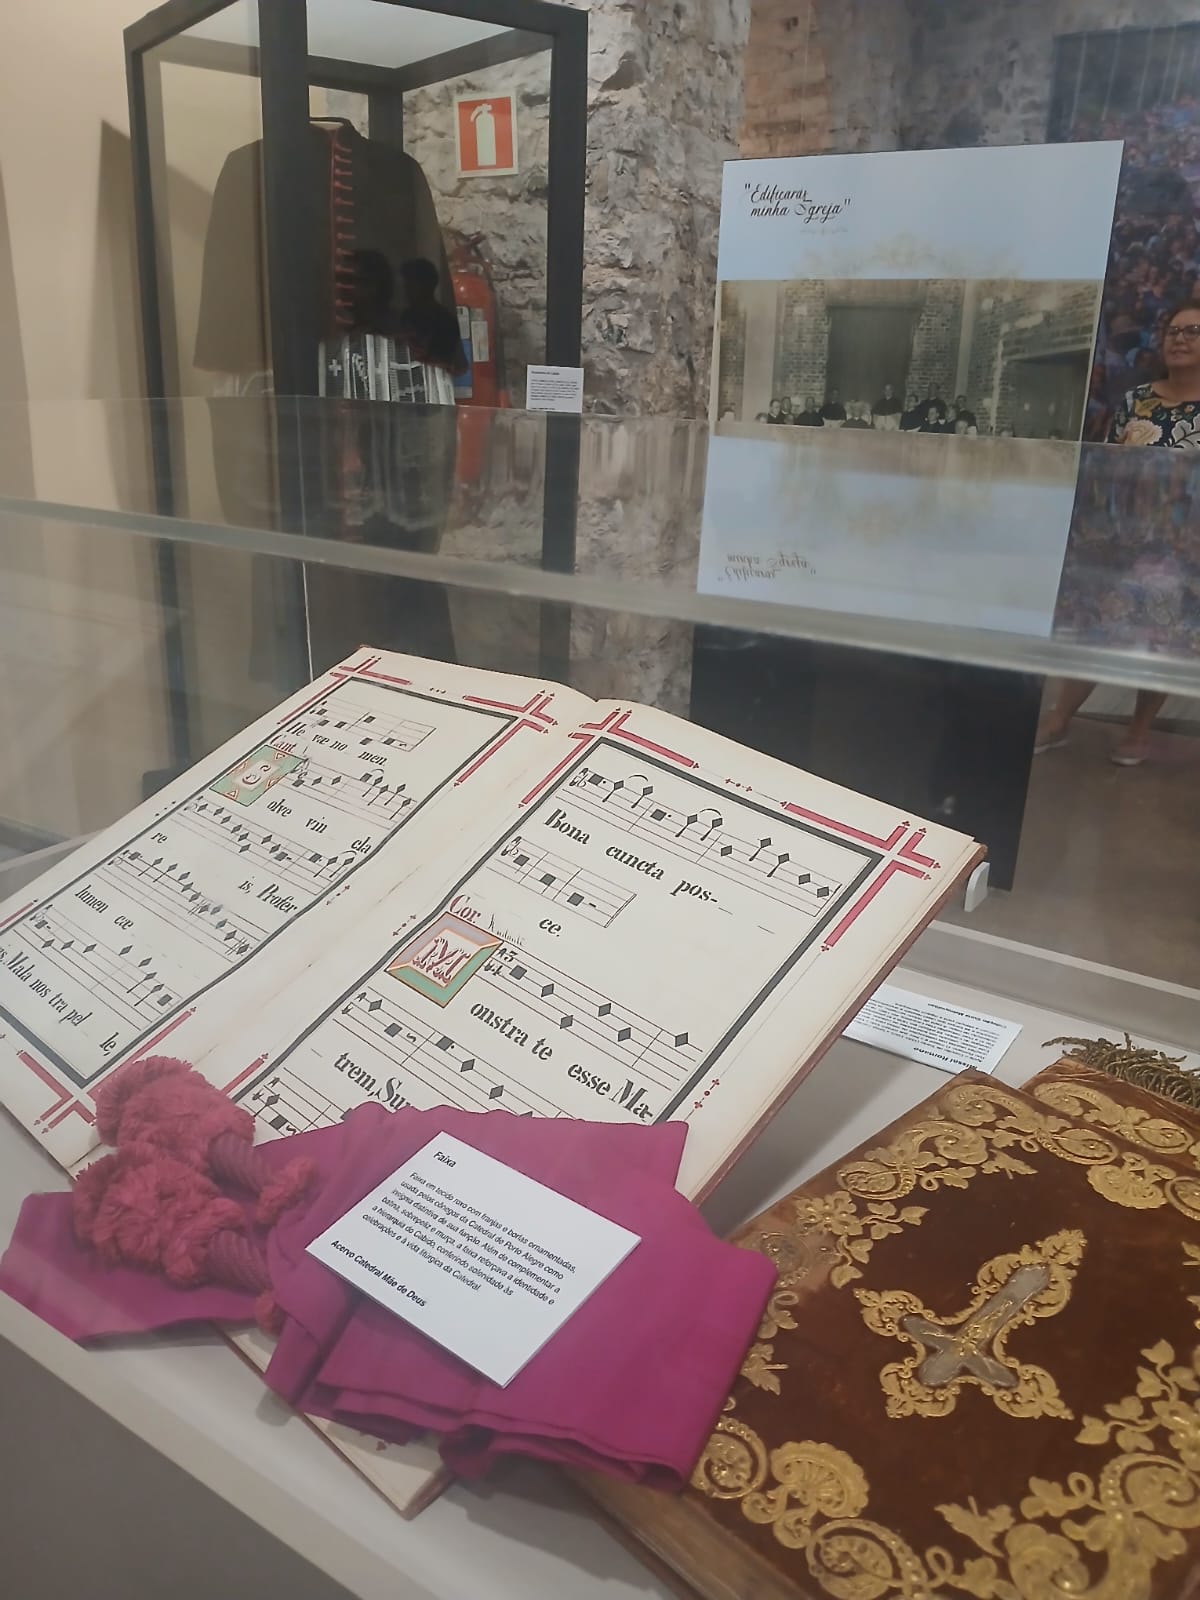 "Edificarás
minha Igreja"
He væ no men.
Cant.
S
olve vin cla
re is, Profer
lumen cæ
is, Mala nos tra pel le,
Bona cuncta pos-
ce.
Cor. Andante
M
onstra te esse Ma-
trem, Su
Missal Romano
Faixa
Faixa em tecido roxo com franjas e borlas ornamentadas,
usada pelos cônegos da Catedral de Porto Alegre como
insígnia distintiva de sua função. Além de complementar a
batina, sobrepeliz e murça, a faixa reforçava a identidade e
a hierarquia do Cabido, conferindo solenidade às
celebrações e à vida litúrgica da Catedral.
Acervo Catedral Mãe de Deus